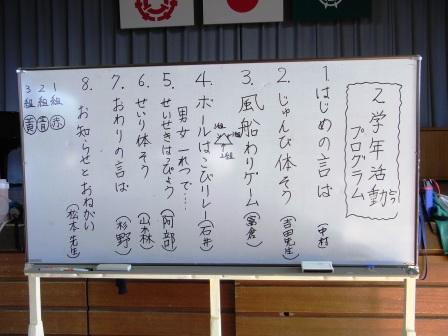 2学年活動
プログラム
1 はじめの言ば (中村)
2. じゅんび体そう (吉田先生)
3. 風船わりゲーム (冨倉)
4. ボールはこびリレー (石井)
男女一れつで…
5. せいせきはっぴょう (阿部)
6. せいり体そう
7. おわりの言ば (杉野)
8. お知らせとおねがい (松本先生)
1組 赤
2組 青
3組 黄